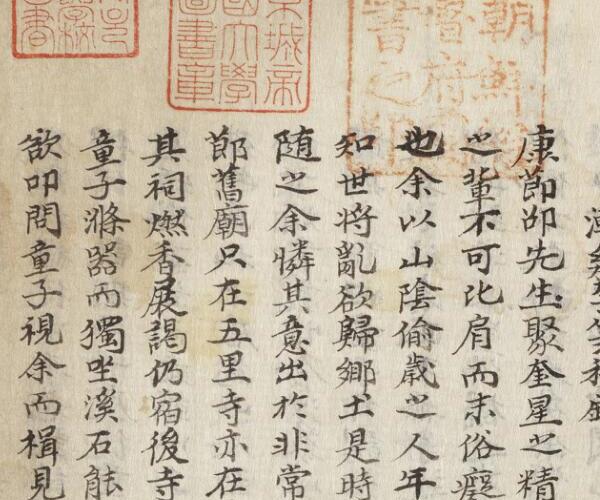 朝鮮
督府
書之印
城帝
國大學
圖書章
康節邵先生聚奎星之精
之輩不可比肩而末俗癡
也余以山陰偷歲之人年
知世将亂欲歸鄉土是時
随之余憐其意出於非常
郎舊廟只在五里寺亦在
其祠燃香展謁仍宿後寺
童子滌器而獨坐溪石能
欲叩問童子視余而楫見